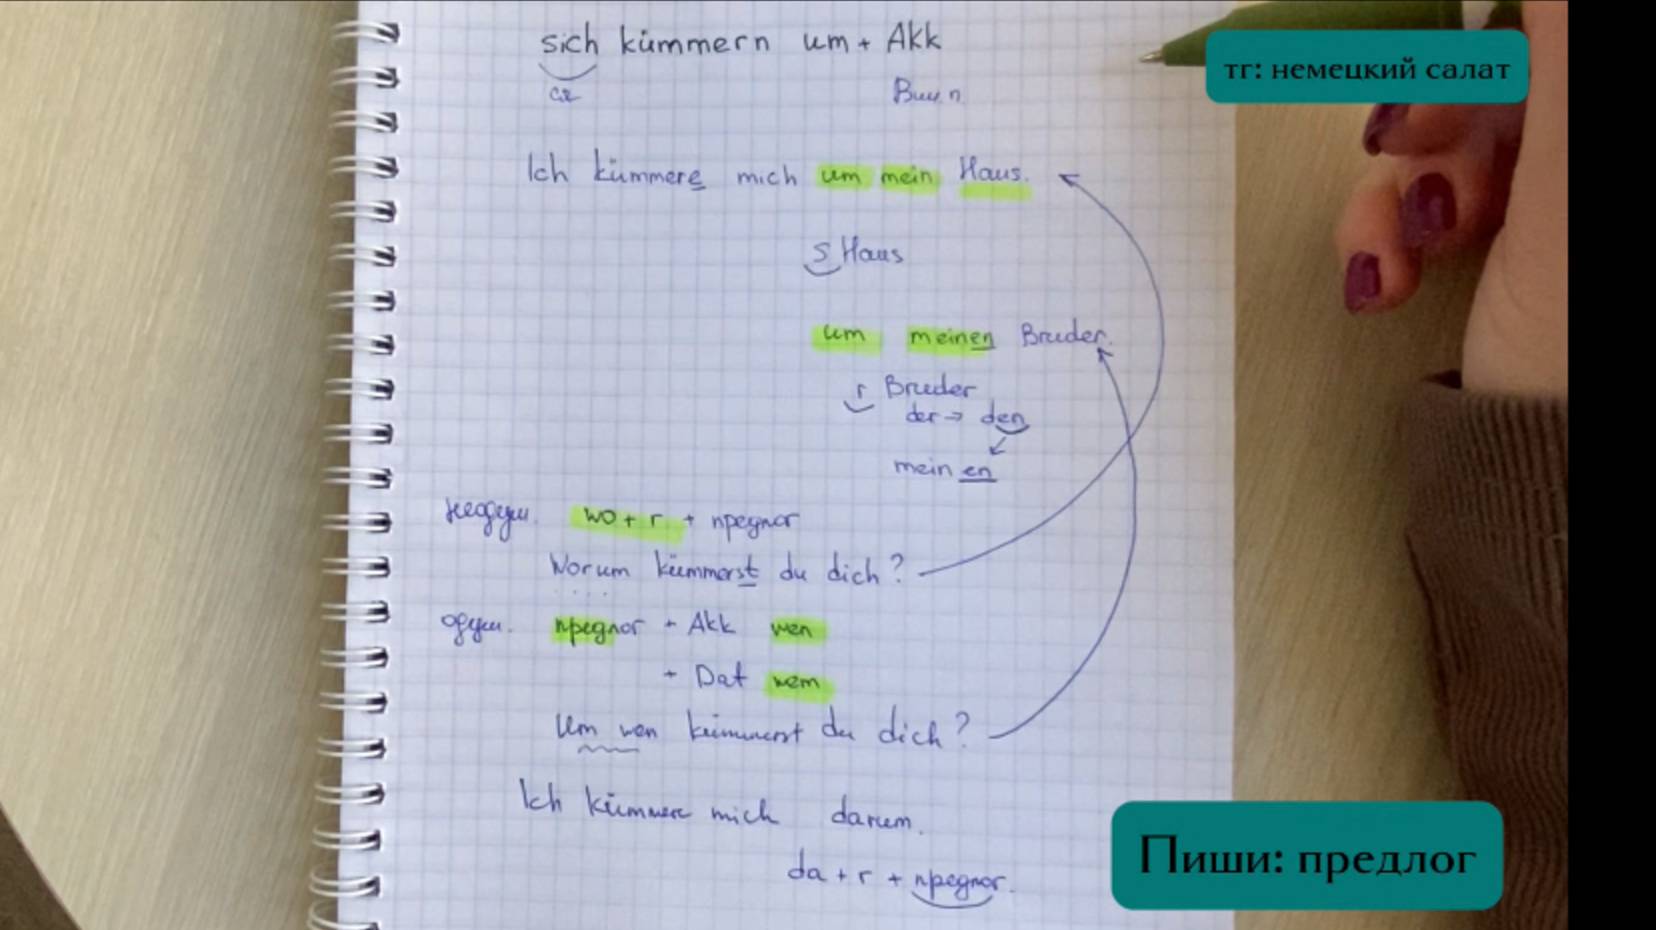 sich kümmern um + Akk
ся Вин.п
тг: немецкий салат
Ich kümmere mich um mein Haus.
s Haus
um meinen Bruder.
r Bruder
der → den
meinen
неодуш. wo + r + предлог
Worum kümmerst du dich?
одуш. предлог + Akk wen
+ Dat wem
Um wen kümmerst du dich?
Ich kümmere mich darum.
da + r + предлог.
Пиши: предлог